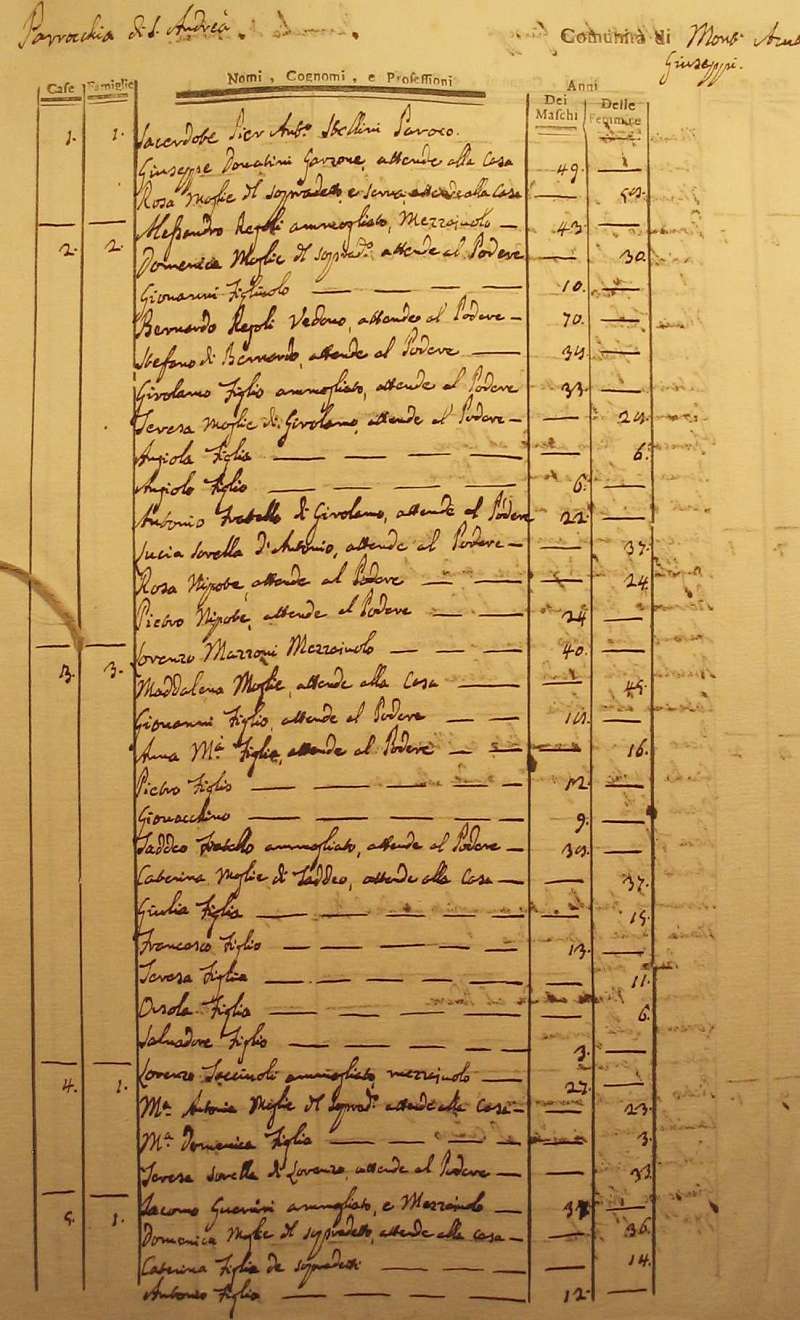 Parrocchia di S. Andrea.
Comunità di Mont
Giuseppi.
Case Famiglie Nomi, Cognomi, e Professioni Anni
Dei Maschi Delle Femmine
1. 1. Sacerdote Pier Anto Stellini Paroco.
Giuseppe Donatini Garzone, attende alla Casa 49. —
Rosa Moglie del sopradetto, e serva attende alla Casa —
2. 2. Alessandro Regoli ammogliato, Mezzajuolo — 43. —
Domenica Moglie del soprado attende al Podere — 30.
Giovanni Figliuolo — — — — 10. —
Bernardo Regoli Vedovo, attende al Podere — 70. —
Stefano di Bernardo, attende al Podere — 34. —
Girolamo Figlio ammogliato, attende al Podere 33. —
Teresa Moglie di Girolamo, attende al Podere — — 24.
Angiola Figlia — — — — — 6.
Angiolo Figlio — — — — 6. —
Antonio Fratello di Girolamo, attende al Podere 22. —
Lucia Sorella d'Antonio, attende al Podere — — 37.
Rosa Nipote, attende al Podere — — — 24.
Pietro Nipote, attende al Podere — — 24 —
3. 3. Lorenzo Mazzoni Mezzajuolo — — — 40. —
Maddalena Moglie, attende alla Casa — — 45.
Giovanni Figlio, attende al Podere — — —
Anna Ma Figlia, attende al Podere — — — 16.
Pietro Figlio — — — — — 12. —
Giovacchino — — — — — 9. —
Taddeo Fratello ammogliato, attende al Podere — —
Caterina Moglie di Taddeo, attende alla Casa — — 37.
Giulia Figlia — — — — — — 15.
Francesco Figlio — — — — 13. —
Teresa Figlia — — — — — — 11.
Orsola Figlia — — — — — — 6.
Salvadore Figlio — — — — 3. —
4. 1. Lorenzo ammogliato, mezzajuolo — 27. —
Ma Antonia Moglie del soprado attende alla Casa — — 23.
Ma Domenica Figlia — — — — 3.
Teresa Sorella di Lorenzo, attende al Podere — — 33.
5. 1. Jacomo Guerrini ammogliato, e Mezzajuolo — 37. —
Domenica Moglie del sopradetto, attende alla casa — — 36.
Caterina Figlia de sopradetti — — — — 14.
Antonio Figlio — — — — 12. —